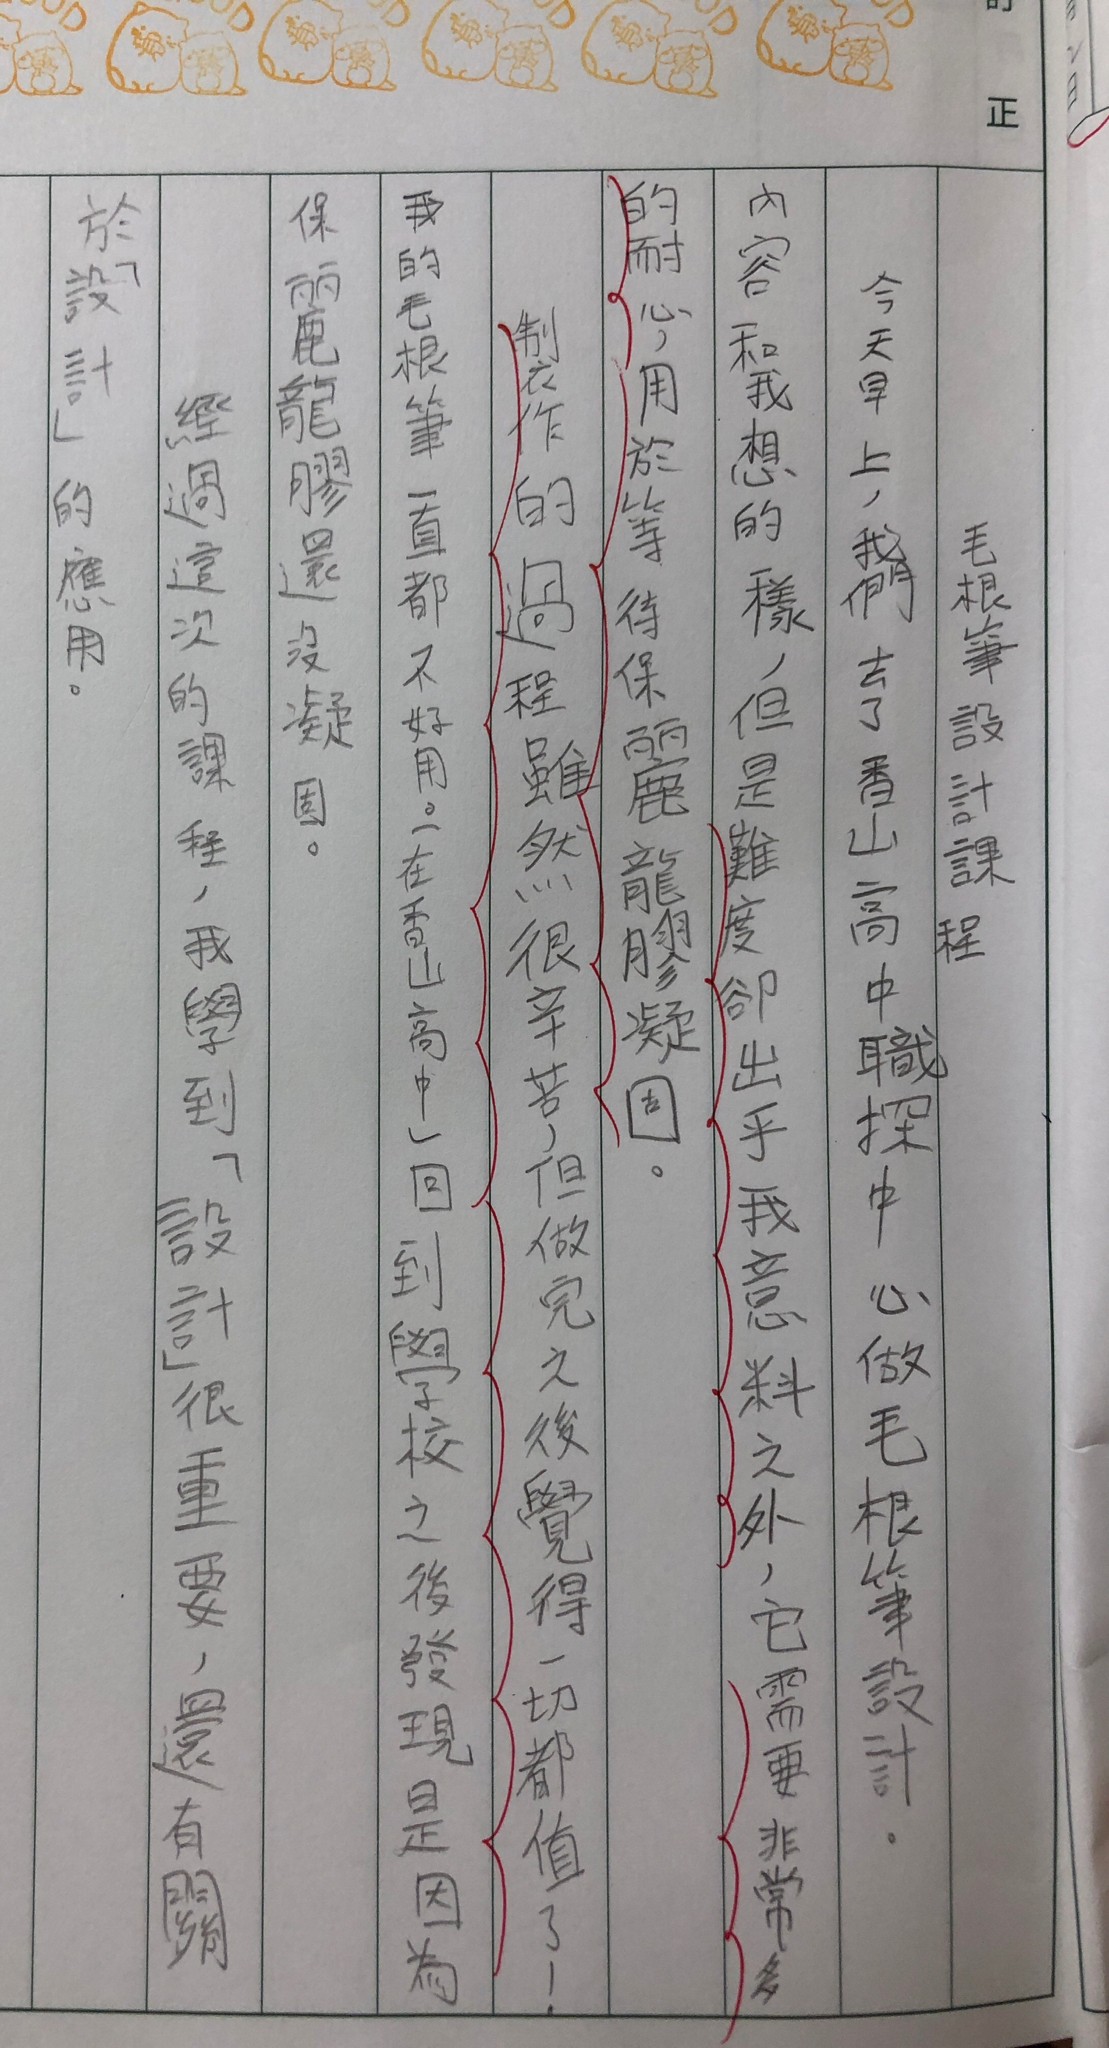 正
毛根筆設計課程
今天早上,我們去了香山高中職探中心做毛根筆設計。
內容和我想的一樣,但是難度卻出乎我意料之外,它需要非常多
的耐心,用於等待保麗龍膠凝固。
製作的過程雖然很辛苦,但做完之後覺得一切都值了!
我的毛根筆一直都不好用。「在香山高中」回到學校之後發現是因為
保麗龍膠還沒凝固。
經過這次的課程,我學到「設計」很重要,還有關
於「設計」的應用。